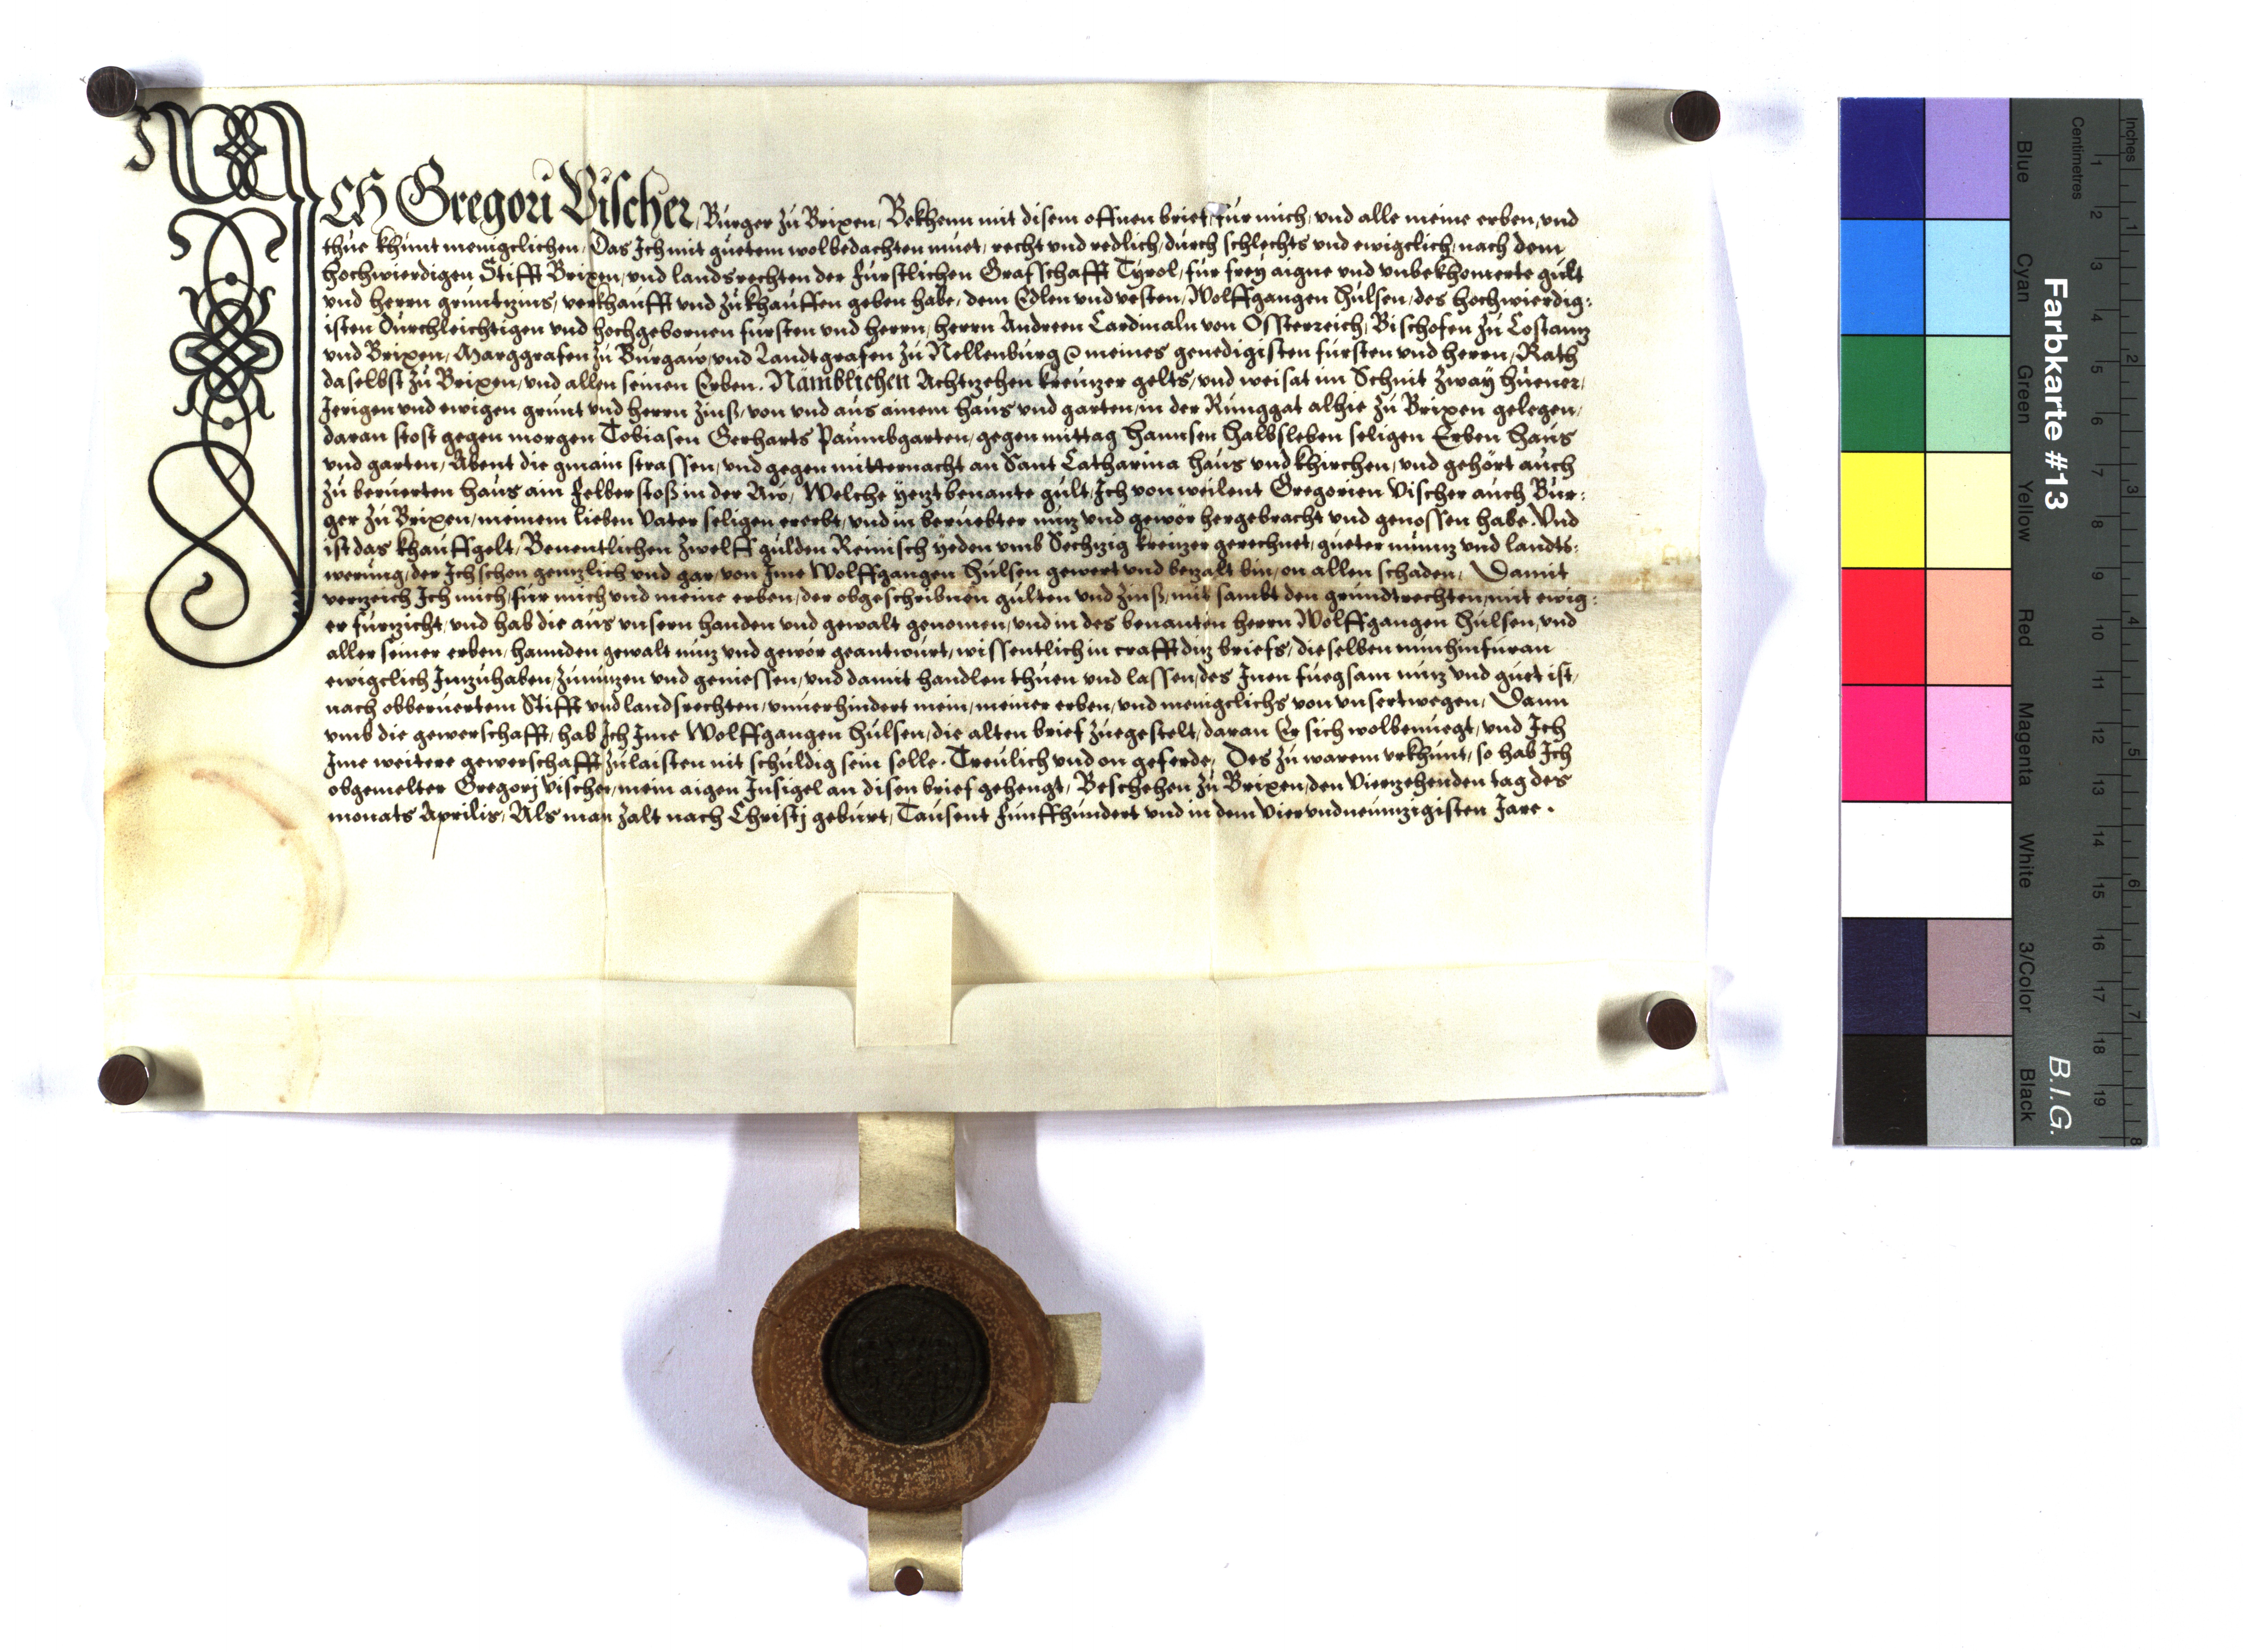 ICH Gregori Vischer, Burger zu Brixen, Bekhenn mit disem offnen brief, für mich, und alle meine erben, und
thue khunt menigclichen, Das Ich mit guetem wolbedachten muet, recht und redlich, durch schlechts und ewigclich, nach dem
hochwierdigen Stifft Brixen, und landsrechten der fürstlichen Grafschafft Tyrol, für frey aigne und unbekhomerte gült
und herrn gruntzins, verkhaufft und zukhauffen geben habe, dem Edlen und vesten, Wolffgangen Hülsen, des hochwierdig:
isten durchleichtigen und hochgebornen fürsten und herrn, herrn Andreen Cardinaln von Ossterreich, Bischofen zu Costantz
und Brixen, Marggrafen zu Burgaw, und Landtgrafen zu Nellenburg meines genedigisten fürsten und herrn, Rath
daselbst zu Brixen, und allen seinen Erben. Nämblichen Achtzehen kreutzer gelts, und weisat im Schnit zway huener,
Jerigen und ewigen grunt und herrn zinß, von und aus ainem haus und garten, in der Runggat alhie zu Brixen gelegen,
daran stost gegen morgen Tobiasen Gerharts Paumbgarten, gegen mittag Hannsen Halbsleben seligen Erben haus
und garten, Abent die gmain strassen, und gegen mitternacht an Sant Catharina haus und khirchen, und gehört auch
zu beruerten haus ain felber stoß in der Aw, Welche yetzt benante gült, Ich von weilent Gregorien Vischer auch Bur:
ger zu Brixen, meinem lieben Vater seligen ererbt, und in beruebter nutz und gewör hergebracht und genossen habe. Und
ist das khauffgelt, Benentlichen zwelff gulden Reinisch yeden umb Sechtzig kreutzer gerechnet, gueter müntz und landts:
werung, der Ich schon gentzlich und gar, von Ime Wolffgangen Hülsen gewert und betzalt bin, on allen schaden, Damit
vertzeich Ich mich, für mich und meine erben, der obgeschribnen gülten und zinß, mit sambt den grundtrechten, mit ewig:
er fürtzicht, und hab die aus unsern handen und gewalt genomen, und in des benanten herrn Wolffgangen Hülsen, und
aller seiner erben, hannden gewalt nutz und gewör geantwurt, wissentlich in crafft ditz briefs, dieselben nun hinfüran
ewigclich Inntzuhaben, zunutzen und geniessen, und damit handlen thuen und lassen, des Inen fuegsam nutz und guet ist,
nach obberuertem Stifft und landsrechten, unuerhindert mein, meiner erben, und menigclichs von unsertwegen, Dann
umb die gewerschafft, hab Ich Ime Wolffgangen Hülsen, die alten brief zuegestelt, daran Er sich wolbenuegt, und Ich
Ime weitere gewerschafft zulaisten nit schuldig sein solle. Treulich und on geferde, Des zu warem urkhunt, so hab Ich
obgemelter Gregorj Vischer, mein aigen Insigel an disen brief gehengt, Beschehen zu Brixen, den Viertzehenden tag des
monats Aprilis, Als man zalt nach Christj geburt, Tausent fünffhundert und in dem Vierundneuntzigisten Jare.
Inches 1 2 3 4 5 6 7 8
Centimetres 1 2 3 4 5 6 7 8 9 10 11 12 13 14 15 16 17 18 19
Farbkarte #13 B.I.G.
Blue Cyan Green Yellow Red Magenta White 3/Color Black